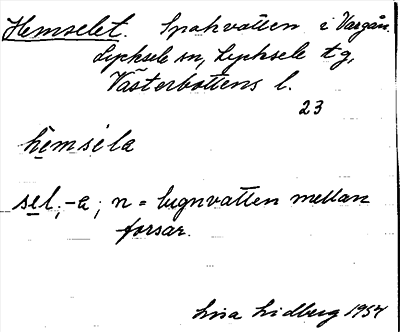 Hemselet. Spakvatten i Vargån.
Lycksele sn, Lycksele tg,
Västerbottens l.
23
hemsela
sel, -a; n = lugnvatten mellan
forsar.
Lisa Lidberg 1957